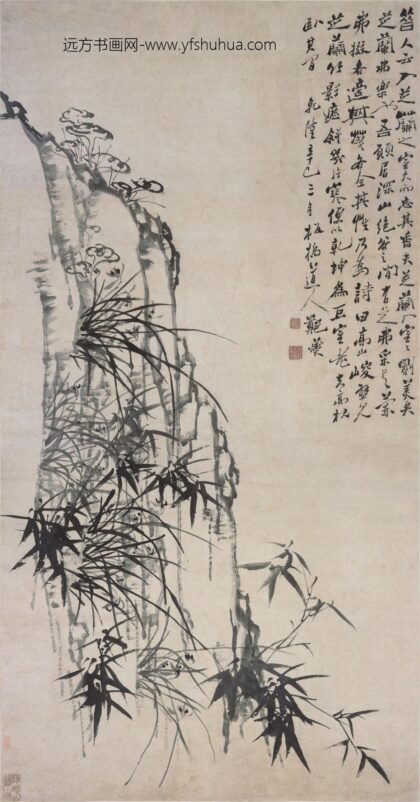 远方书画网-www.yfshuhua.com
昔人云入芝蘭之室久而忘其香夫芝蘭入室室則美矣
芝蘭弗樂也吾願居深山絕谷之間有芝弗采有蘭
弗掇各適其天各全其性乃為詩曰高山峻壁見
芝蘭竹影遮斜幾片寒便以乾坤為巨室老夫高枕
臥其間 乾隆辛巳三月板橋道人鄭燮